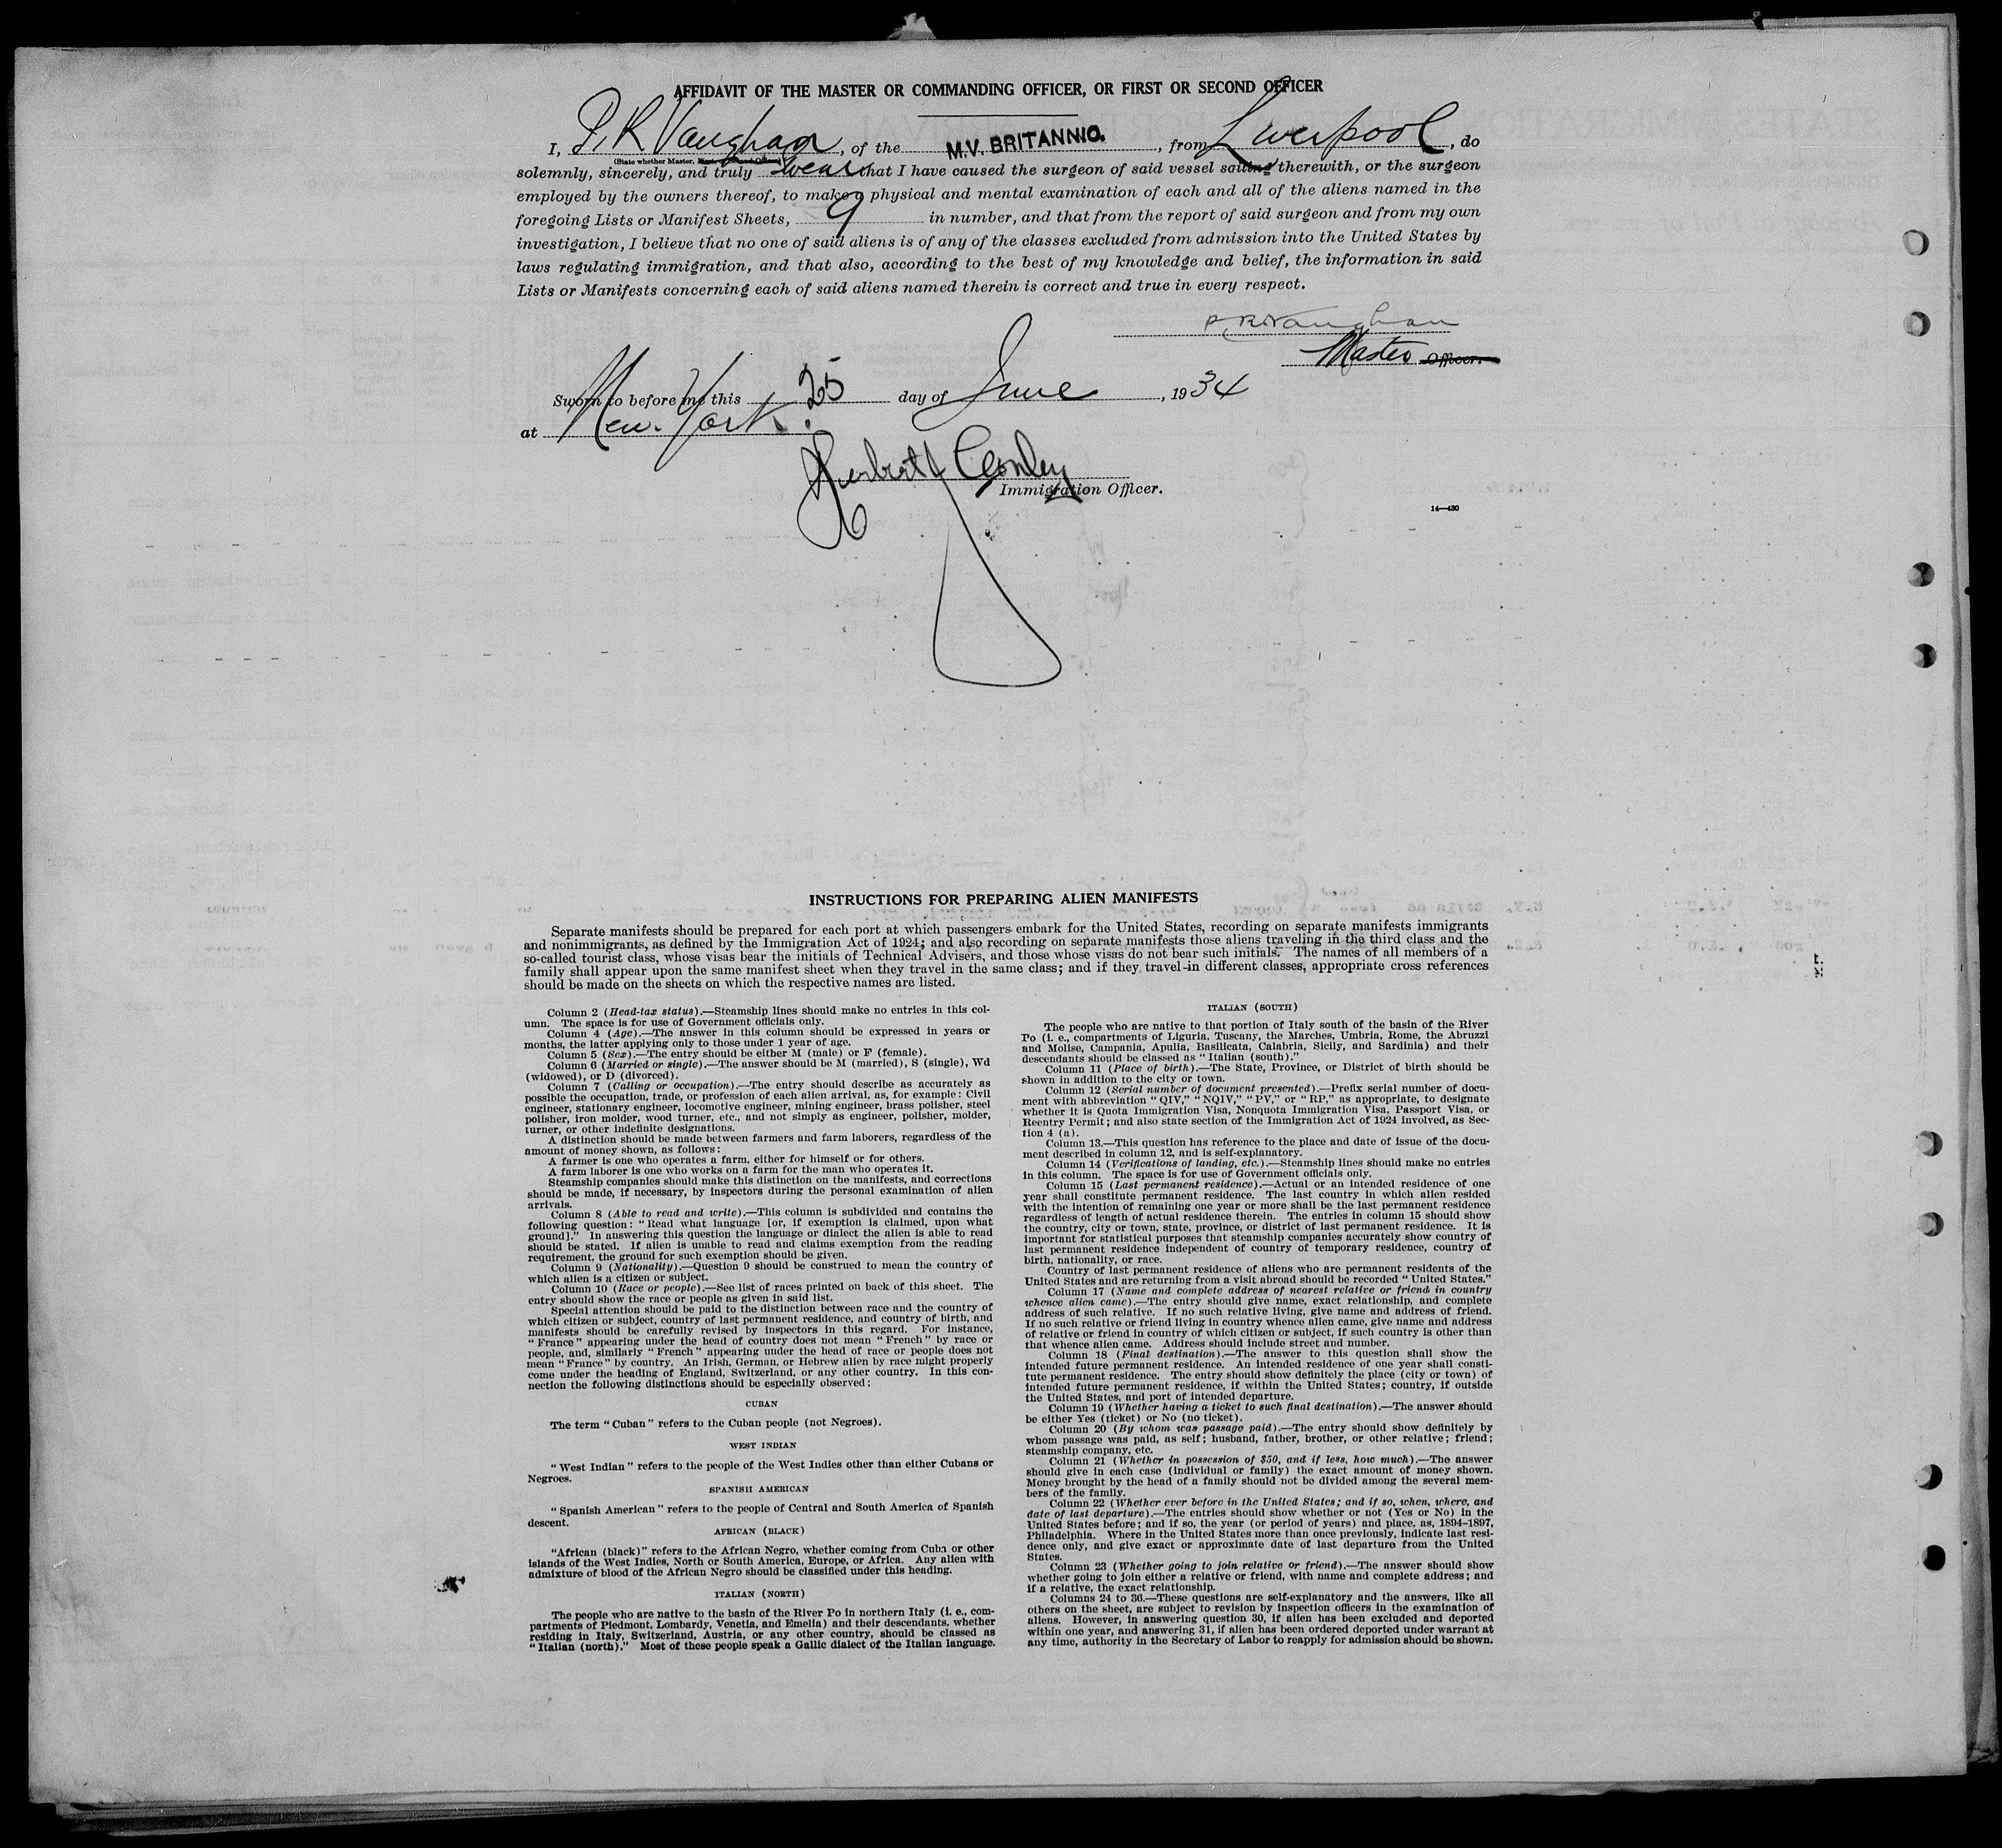 AFFIDAVIT OF THE MASTER OR COMMANDING OFFICER, OR FIRST OR SECOND OFFICER
I, P. R Vaughan, of the M.V. BRITANNIC., from Liverpool, do
(State whether Master, First or Second Officer)
solemnly, sincerely, and truly swear that I have caused the surgeon of said vessel sailing therewith, or the surgeon
employed by the owners thereof, to make a physical and mental examination of each and all of the aliens named in the
foregoing Lists or Manifest Sheets, 9 in number, and that from the report of said surgeon and from my own
investigation, I believe that no one of said aliens is of any of the classes excluded from admission into the United States by
laws regulating immigration, and that also, according to the best of my knowledge and belief, the information in said
Lists or Manifests concerning each of said aliens named therein is correct and true in every respect.
P R Vaughan
Master Officer.
Sworn to before me this 25 day of June, 1934
at New York.
Herbert Conley
Immigration Officer.
14—430
INSTRUCTIONS FOR PREPARING ALIEN MANIFESTS
Separate manifests should be prepared for each port at which passengers embark for the United States, recording on separate manifests immigrants
and nonimmigrants, as defined by the Immigration Act of 1924; and also recording on separate manifests those aliens traveling in the third class and the
so-called tourist class, whose visas bear the initials of Technical Advisers, and those whose visas do not bear such initials. The names of all members of a
family shall appear upon the same manifest sheet when they travel in the same class; and if they travel in different classes, appropriate cross references
should be made on the sheets on which the respective names are listed.
Column 2 (Head-tax status).—Steamship lines should make no entries in this col-
umn. The space is for use of Government officials only.
Column 4 (Age).—The answer in this column should be expressed in years or
months, the latter applying only to those under 1 year of age.
Column 5 (Sex).—The entry should be either M (male) or F (female).
Column 6 (Married or single).—The answer should be M (married), S (single), Wd
(widowed), or D (divorced).
Column 7 (Calling or occupation).—The entry should describe as accurately as
possible the occupation, trade, or profession of each alien arrival, as, for example: Civil
engineer, stationary engineer, locomotive engineer, mining engineer, brass polisher, steel
polisher, iron molder, wood turner, etc., and not simply as engineer, polisher, molder,
turner, or other indefinite designations.
A distinction should be made between farmers and farm laborers, regardless of the
amount of money shown, as follows:
A farmer is one who operates a farm, either for himself or for others.
A farm laborer is one who works on a farm for the man who operates it.
Steamship companies should make this distinction on the manifests, and corrections
should be made, if necessary, by inspectors during the personal examination of alien
arrivals.
Column 8 (Able to read and write).—This column is subdivided and contains the
following question: "Read what language [or, if exemption is claimed, upon what
ground]." In answering this question the language or dialect the alien is able to read
should be stated. If alien is unable to read and claims exemption from the reading
requirement, the ground for such exemption should be given.
Column 9 (Nationality).—Question 9 should be construed to mean the country of
which alien is a citizen or subject.
Column 10 (Race or people).—See list of races printed on back of this sheet. The
entry should show the race or people as given in said list.
Special attention should be paid to the distinction between race and the country of
which citizen or subject, country of last permanent residence, and country of birth, and
manifests should be carefully revised by inspectors in this regard. For instance,
"France" appearing under the head of country does not mean "French" by race or
people, and, similarly "French" appearing under the head of race or people does not
mean "France" by country. An Irish, German, or Hebrew alien by race might properly
come under the heading of England, Switzerland, or any other country. In this con-
nection the following distinctions should be especially observed:
CUBAN
The term "Cuban" refers to the Cuban people (not Negroes).
WEST INDIAN
"West Indian" refers to the people of the West Indies other than either Cubans or
Negroes.
SPANISH AMERICAN
"Spanish American" refers to the people of Central and South America of Spanish
descent.
AFRICAN (BLACK)
"African (black)" refers to the African Negro, whether coming from Cuba or other
islands of the West Indies, North or South America, Europe, or Africa. Any alien with
admixture of blood of the African Negro should be classified under this heading.
ITALIAN (NORTH)
The people who are native to the basin of the River Po in northern Italy (i. e., com-
partments of Piedmont, Lombardy, Venetia, and Emelia) and their descendants, whether
residing in Italy, Switzerland, Austria, or any other country, should be classed as
"Italian (north)." Most of these people speak a Gallic dialect of the Italian language.
ITALIAN (SOUTH)
The people who are native to that portion of Italy south of the basin of the River
Po (i. e., compartments of Liguria, Tuscany, the Marches, Umbria, Rome, the Abruzzi
and Molise, Campania, Apulia, Basilicata, Calabria, Sicily, and Sardinia) and their
descendants should be classed as "Italian (south)."
Column 11 (Place of birth).—The State, Province, or District of birth should be
shown in addition to the city or town.
Column 12 (Serial number of document presented).—Prefix serial number of docu-
ment with abbreviation "QIV," "NQIV," "PV," or "RP," as appropriate, to designate
whether it is Quota Immigration Visa, Nonquota Immigration Visa, Passport Visa, or
Reentry Permit; and also state section of the Immigration Act of 1924 involved, as Sec-
tion 4 (a).
Column 13.—This question has reference to the place and date of issue of the docu-
ment described in column 12, and is self-explanatory.
Column 14 (Verifications of landing, etc.).—Steamship lines should make no entries
in this column. The space is for use of Government officials only.
Column 15 (Last permanent residence).—Actual or an intended residence of one
year shall constitute permanent residence. The last country in which alien resided
with the intention of remaining one year or more shall be the last permanent residence
regardless of length of actual residence therein. The entries in column 15 should show
the country, city or town, state, province, or district of last permanent residence. It is
important for statistical purposes that steamship companies accurately show country of
last permanent residence independent of country of temporary residence, country of
birth, nationality, or race.
Country of last permanent residence of aliens who are permanent residents of the
United States and are returning from a visit abroad should be recorded "United States."
Column 17 (Name and complete address of nearest relative or friend in country
whence alien came).—The entry should give name, exact relationship, and complete
address of such relative. If no such relative living, give name and address of friend.
If no such relative or friend living in country whence alien came, give name and address
of relative or friend in country of which citizen or subject, if such country is other than
that whence alien came. Address should include street and number.
Column 18 (Final destination).—The answer to this question shall show the
intended future permanent residence. An intended residence of one year shall consti-
tute permanent residence. The entry should show definitely the place (city or town) of
intended future permanent residence, if within the United States; country, if outside
the United States, and port of intended departure.
Column 19 (Whether having a ticket to such final destination).—The answer should
be either Yes (ticket) or No (no ticket).
Column 20 (By whom was passage paid).—The entry should show definitely by
whom passage was paid, as self; husband, father, brother, or other relative; friend;
steamship company, etc.
Column 21 (Whether in possession of $50, and if less, how much).—The answer
should give in each case (individual or family) the exact amount of money shown.
Money brought by the head of a family should not be divided among the several mem-
bers of the family.
Column 22 (Whether ever before in the United States; and if so, when, where, and
date of last departure).—The entries should show whether or not (Yes or No) in the
United States before; and if so, the year (or period of years) and place, as, 1894–1897,
Philadelphia. Where in the United States more than once previously, indicate last resi-
dence only, and give exact or approximate date of last departure from the United
States.
Column 23 (Whether going to join relative or friend).—The answer should show
whether going to join either a relative or friend, with name and complete address; and
if a relative, the exact relationship.
Columns 24 to 36.—These questions are self-explanatory and the answers, like all
others on the sheet, are subject to revision by inspection officers in the examination of
aliens. However, in answering question 30, if alien has been excluded and deported
within one year, and answering 31, if alien has been ordered deported under warrant at
any time, authority in the Secretary of Labor to reapply for admission should be shown.